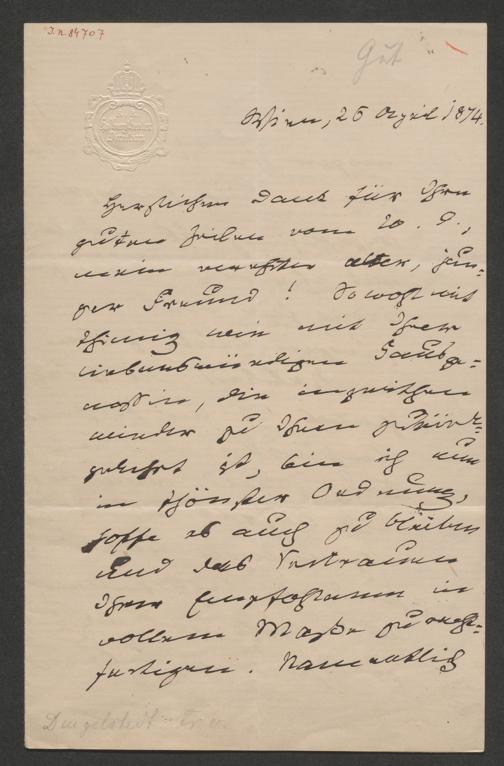 I.N. 84707
Gut
Wien, 25 April 1874.
Herzlichen Dank für Ihre
guten Zeilen vom 20. d.,
mein verehrter alter, jun-
ger Freund! Sowohl mit
wie mit Ihrer
liebenswürdigen Hausge-
nossin, die inzwischen
wieder zu Ihnen zurück-
gekehrt ist, bin ich nun
in schönster Ordnung,
hoffe es auch zu bleiben
und das Vertrauen
Ihrer Empfohlenen in
vollem Maße zu recht-
fertigen. Namentlich
Dingelstedt